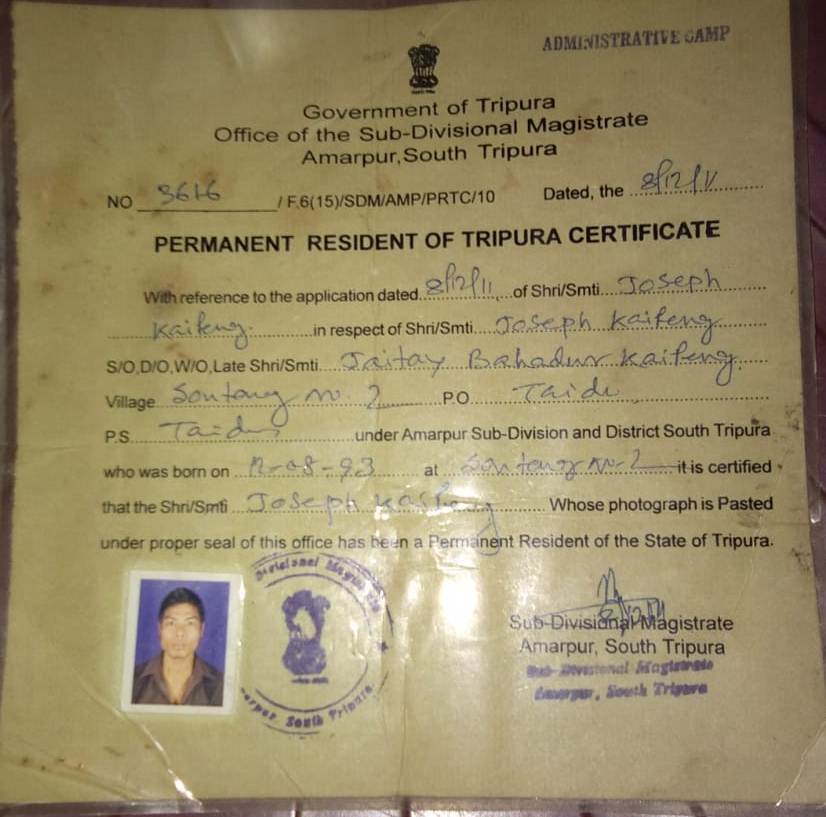 ADMINISTRATIVE CAMP
Government of Tripura
Office of the Sub-Divisional Magistrate
Amarpur,South Tripura
NO 3616 / F.6(15)/SDM/AMP/PRTC/10 Dated, the 8/12/11
PERMANENT RESIDENT OF TRIPURA CERTIFICATE
With reference to the application dated 8/12/11 of Shri/Smti Joseph
Kaifeng in respect of Shri/Smti Joseph Kaifeng
S/O,D/O,W/O,Late Shri/Smti Jaitay Bahadur Kaifeng
Village Sontang no. 2 P.O. Taidu
P.S Taidu under Amarpur Sub-Division and District South Tripura
who was born on 12-08-93 at Sontang No-2 it is certified
that the Shri/Smti Joseph Kaifeng Whose photograph is Pasted
under proper seal of this office has been a Permanent Resident of the State of Tripura.
8/12/11
Sub-Divisional Magistrate
Amarpur, South Tripura
Sub-Divisional Magistrate
Amarpur, South Tripura
Divisional Magistrate
Amarpur, South Tripura